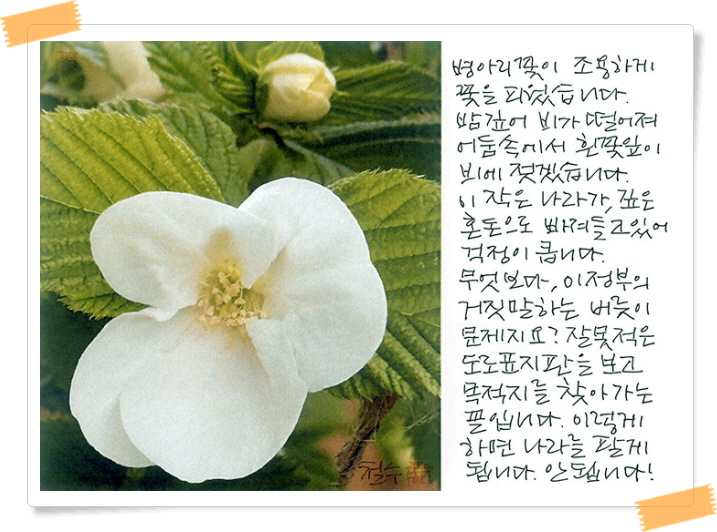 병아리꽃이 조용하게
꽃을 피웠습니다.
밤깊어 비가 떨어져
어둠속에서 흰꽃잎이
비에 젖겠습니다.
이 작은 나라가, 깊은
혼돈으로 빠져들고있어
걱정이 큽니다.
무엇보다, 이정부의
거짓말하는 버릇이
문제지요? 잘못적은
도로표지판을 보고
목적지를 찾아가는
꼴입니다. 이렇게
하면 나라를 팔게
됩니다. 안됩니다!
철수